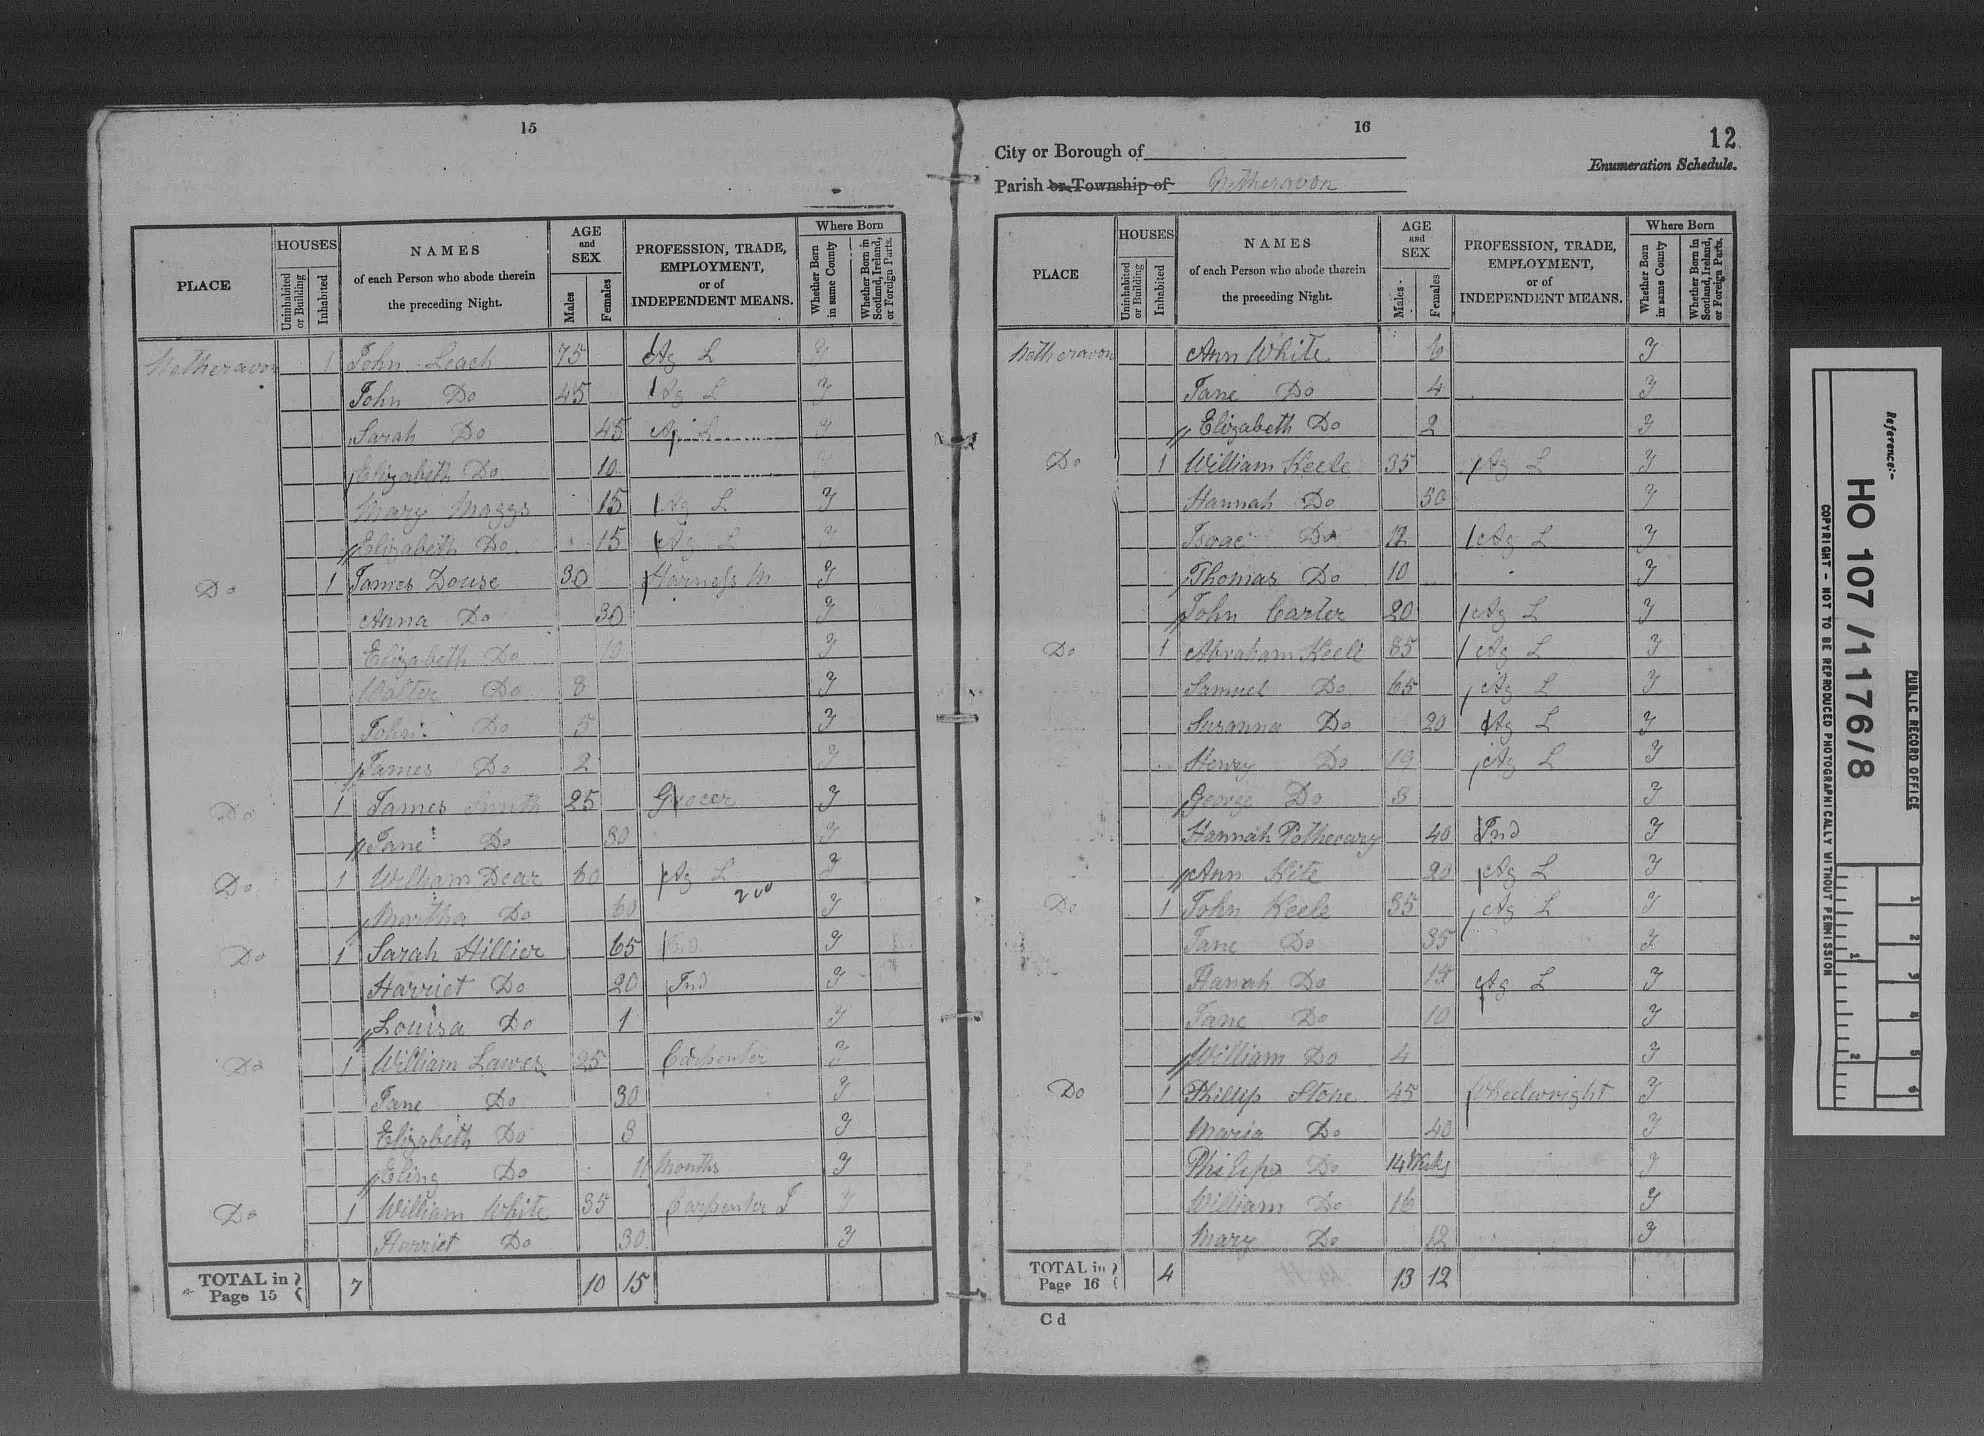 15
PLACE
HOUSES
Uninhabited or Building
Inhabited
NAMES
of each Person who abode therein
the preceding Night.
AGE
and
SEX
Males
Females
PROFESSION, TRADE,
EMPLOYMENT,
or of
INDEPENDENT MEANS.
Where Born
Whether Born in same County
Whether Born in Scotland, Ireland, or Foreign Parts.
Netheravon 1 John Leach 75 Ag L Y
John Do 45 Ag L Y
Sarah Do 45 Ag L Y
Elizabeth Do 10 Y
Mary Maggs 15 Ag L Y
Elizabeth Do 15 Ag L Y
Do 1 James Douse 30 Harness M Y
Anna Do 30 Y
Elizabeth Do 10 Y
Walter Do 8 Y
John Do 5 Y
James Do 2 Y
Do 1 James Smith 25 Grocer Y
Jane Do 30 Y
Do 1 William Dear 60 Ag L Y
200
Martha Do 60 Y
Do 1 Sarah Hillier 65 Y
Harriet Do 20 Ind Y
Louisa Do 1 Y
Do 1 William Lawes 25 Carpenter Y
Jane Do 30 Y
Elizabeth Do 3 Y
Do 11 Months Y
Do 1 William White 35 Carpenter J Y
Harriet Do 30 Y
TOTAL in
Page 15
7 10 15
16
12
City or Borough of
Enumeration Schedule.
Parish or Township of Netheravon
PLACE
HOUSES
Uninhabited or Building
Inhabited
NAMES
of each Person who abode therein
the preceding Night.
AGE
and
SEX
Males
Females
PROFESSION, TRADE,
EMPLOYMENT,
or of
INDEPENDENT MEANS.
Where Born
Whether Born in same County
Whether Born in Scotland, Ireland, or Foreign Parts.
Netheravon Ann White 6 Y
Jane Do 4 Y
Elizabeth Do 2 Y
Do 1 William Keele 35 Ag L Y
Hannah Do 50 Y
Isaac Do 12 Ag L Y
Thomas Do 10 Y
John Carter 20 Ag L Y
Do 1 Abraham Keele 85 Ag L Y
Samuel Do 65 Ag L Y
Suzanna Do 20 Ag L Y
Henry Do 19 Ag L Y
George Do 3 Y
Hannah Pothecary 40 Ind Y
Ann Kite 20 Ag L Y
Do 1 John Keele 35 Ag L Y
Jane Do 35 Y
Hanah Do 15 Ag L Y
Jane Do 10 Y
William Do 4 Y
Do 1 Phillip Stone 45 Wheelwright Y
Maria Do 40 Y
Philip Do 14 Weeks Y
William Do 16 Y
Mary Do 12 Y
TOTAL in
Page 16
4 13 12
C d
Reference:-
HO 107/1176/8
PUBLIC RECORD OFFICE
COPYRIGHT - NOT TO BE REPRODUCED PHOTOGRAPHICALLY WITHOUT PERMISSION
1
2
1
2
3
4
5
6